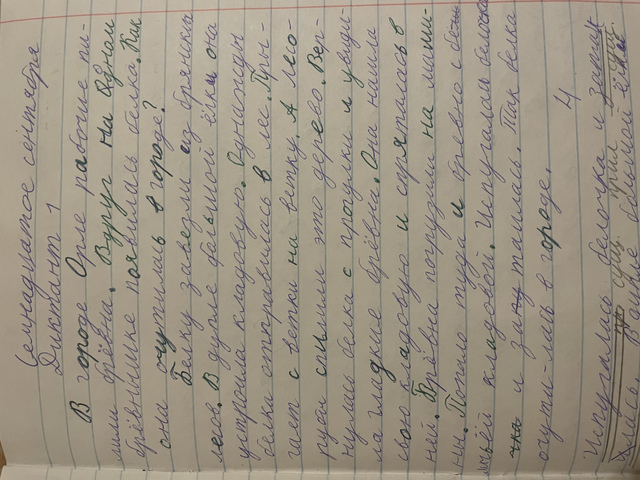 Семнадцатое сентября
Диктант 1
В городе Орле рабочие пи-
лили брёвна. Вдруг на одном
брёвнышке появилась белка. Как
она очутилась в городе?
Белку завезли из брянских
лесов. В дупле большой ёлки она
устроила кладовую. Однажды
белка отправилась в лес. Пры-
гает с ветки на ветку. А лесо-
рубы спилили это дерево. Вер-
нулась белка с прогулки и увиде-
ла гладкие брёвна. Она нашла
свою кладовую и спряталась в
ней. Брёвна погрузили на маши-
ны. Попало туда и бревно с бели-
чьей кладовой. Испугалась белочка
и затаилась. Так белка
очути-лась в городе.
4
Испугалась белочка и